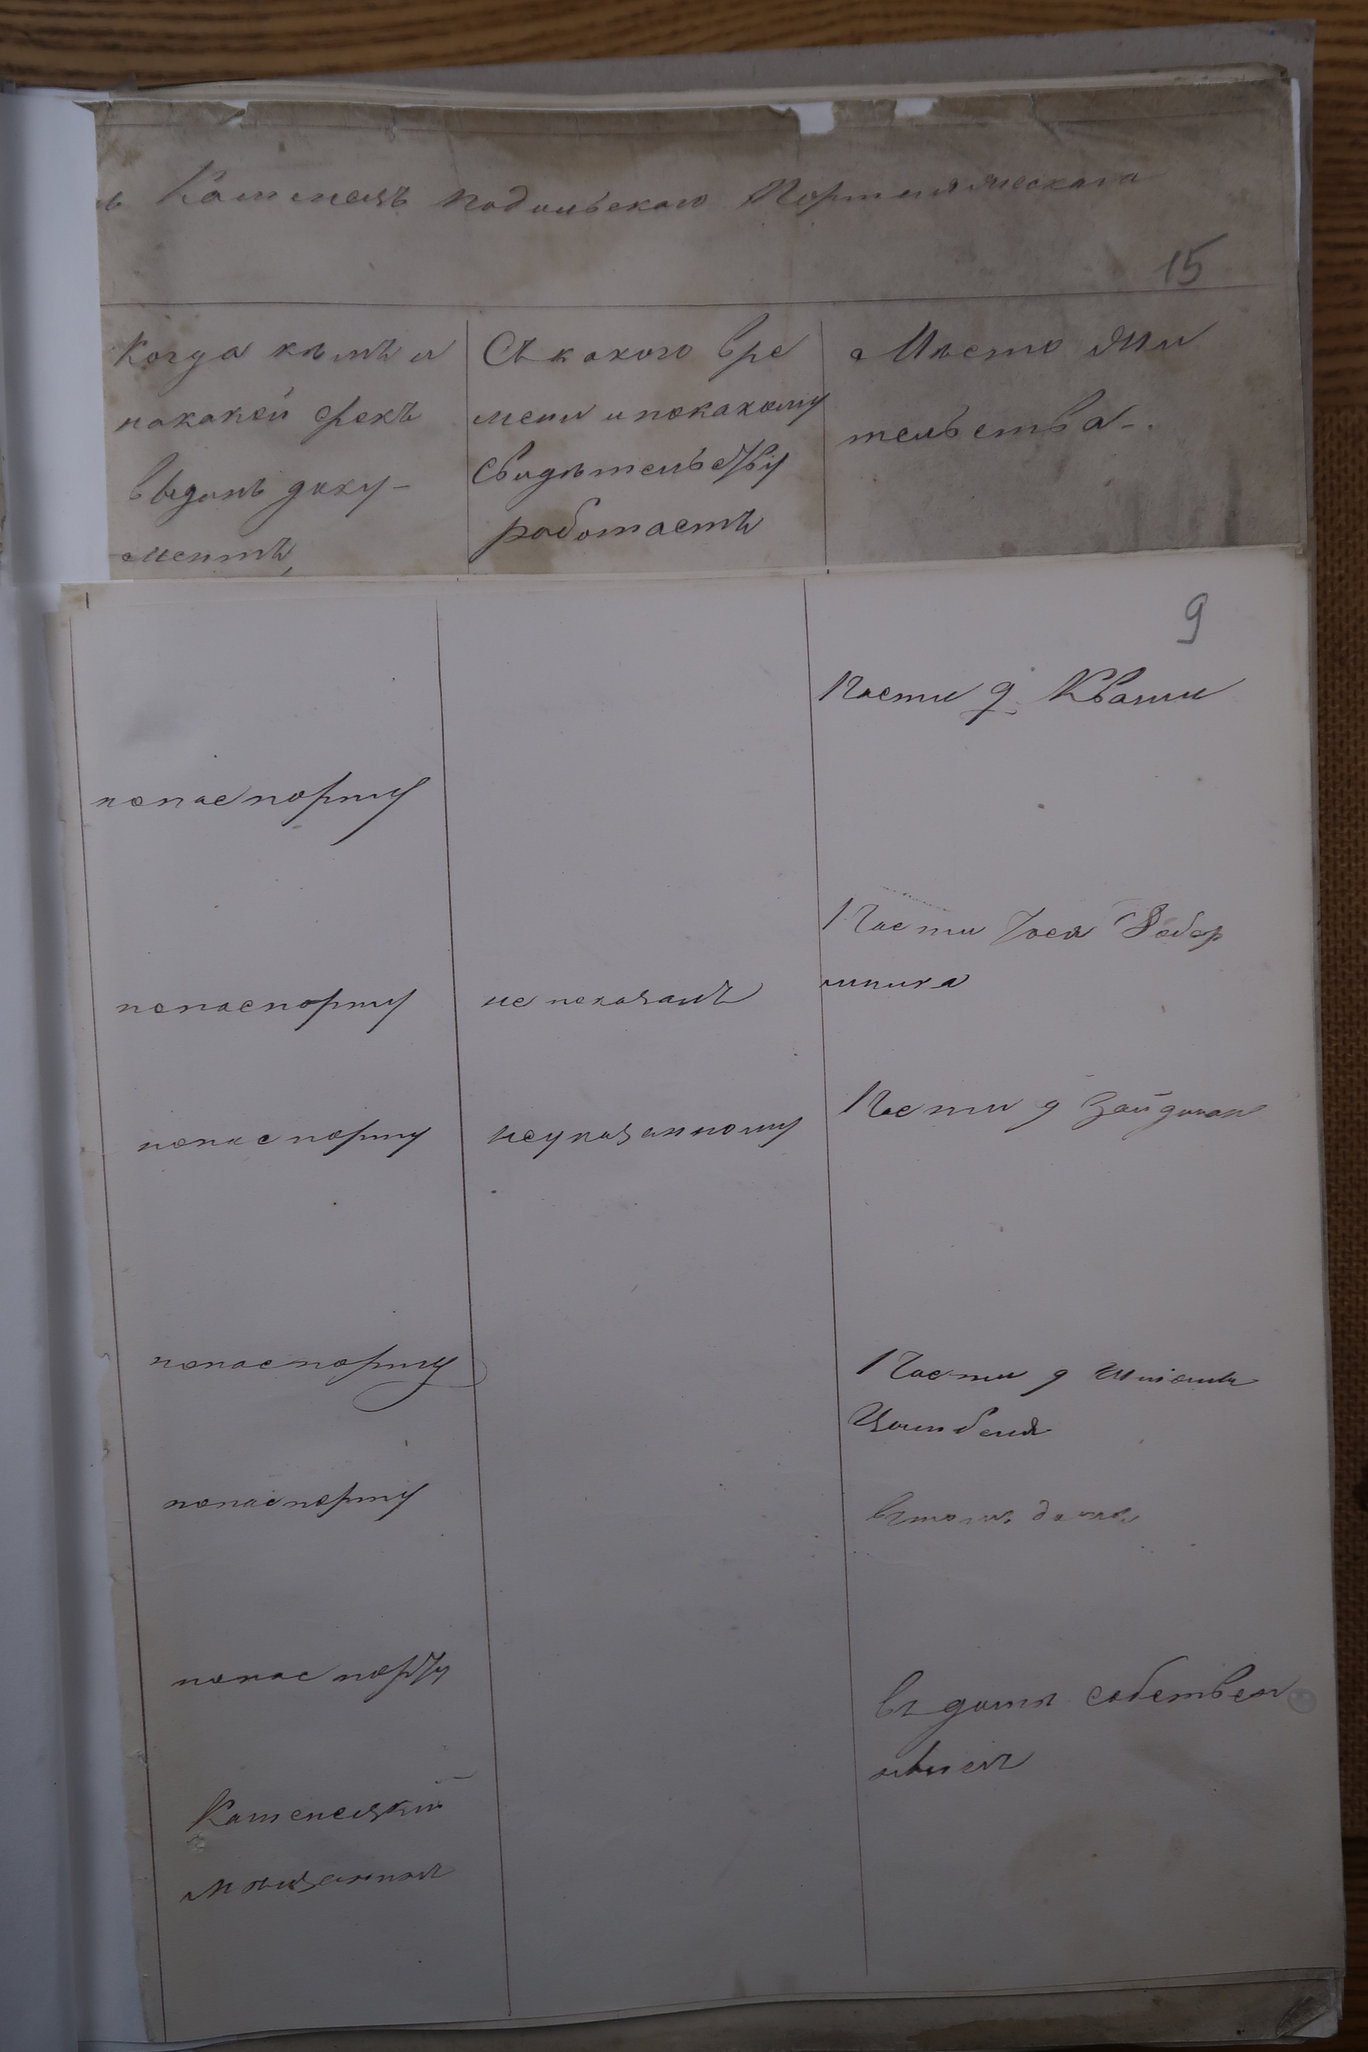 въ Каменецъ Подольскаго Портняжескаго
15
Когда кѣмъ и
на какой срокъ
выданъ доку-
ментъ,
Съ какого вре
мени и по какому
свидѣтельству
работаетъ
Мѣсто жи
тельства.
9
части д. Кваши
по паспорту
части
шника
по паспорту
не показалъ
части д Зайдман
по паспорту
неуказанному
по паспорту
части д Шмоиля
Цимбеля
по паспорту
въ томъ домѣ
по паспорту
въ домѣ собствен
номъ
Каменецкій
мѣщанинъ